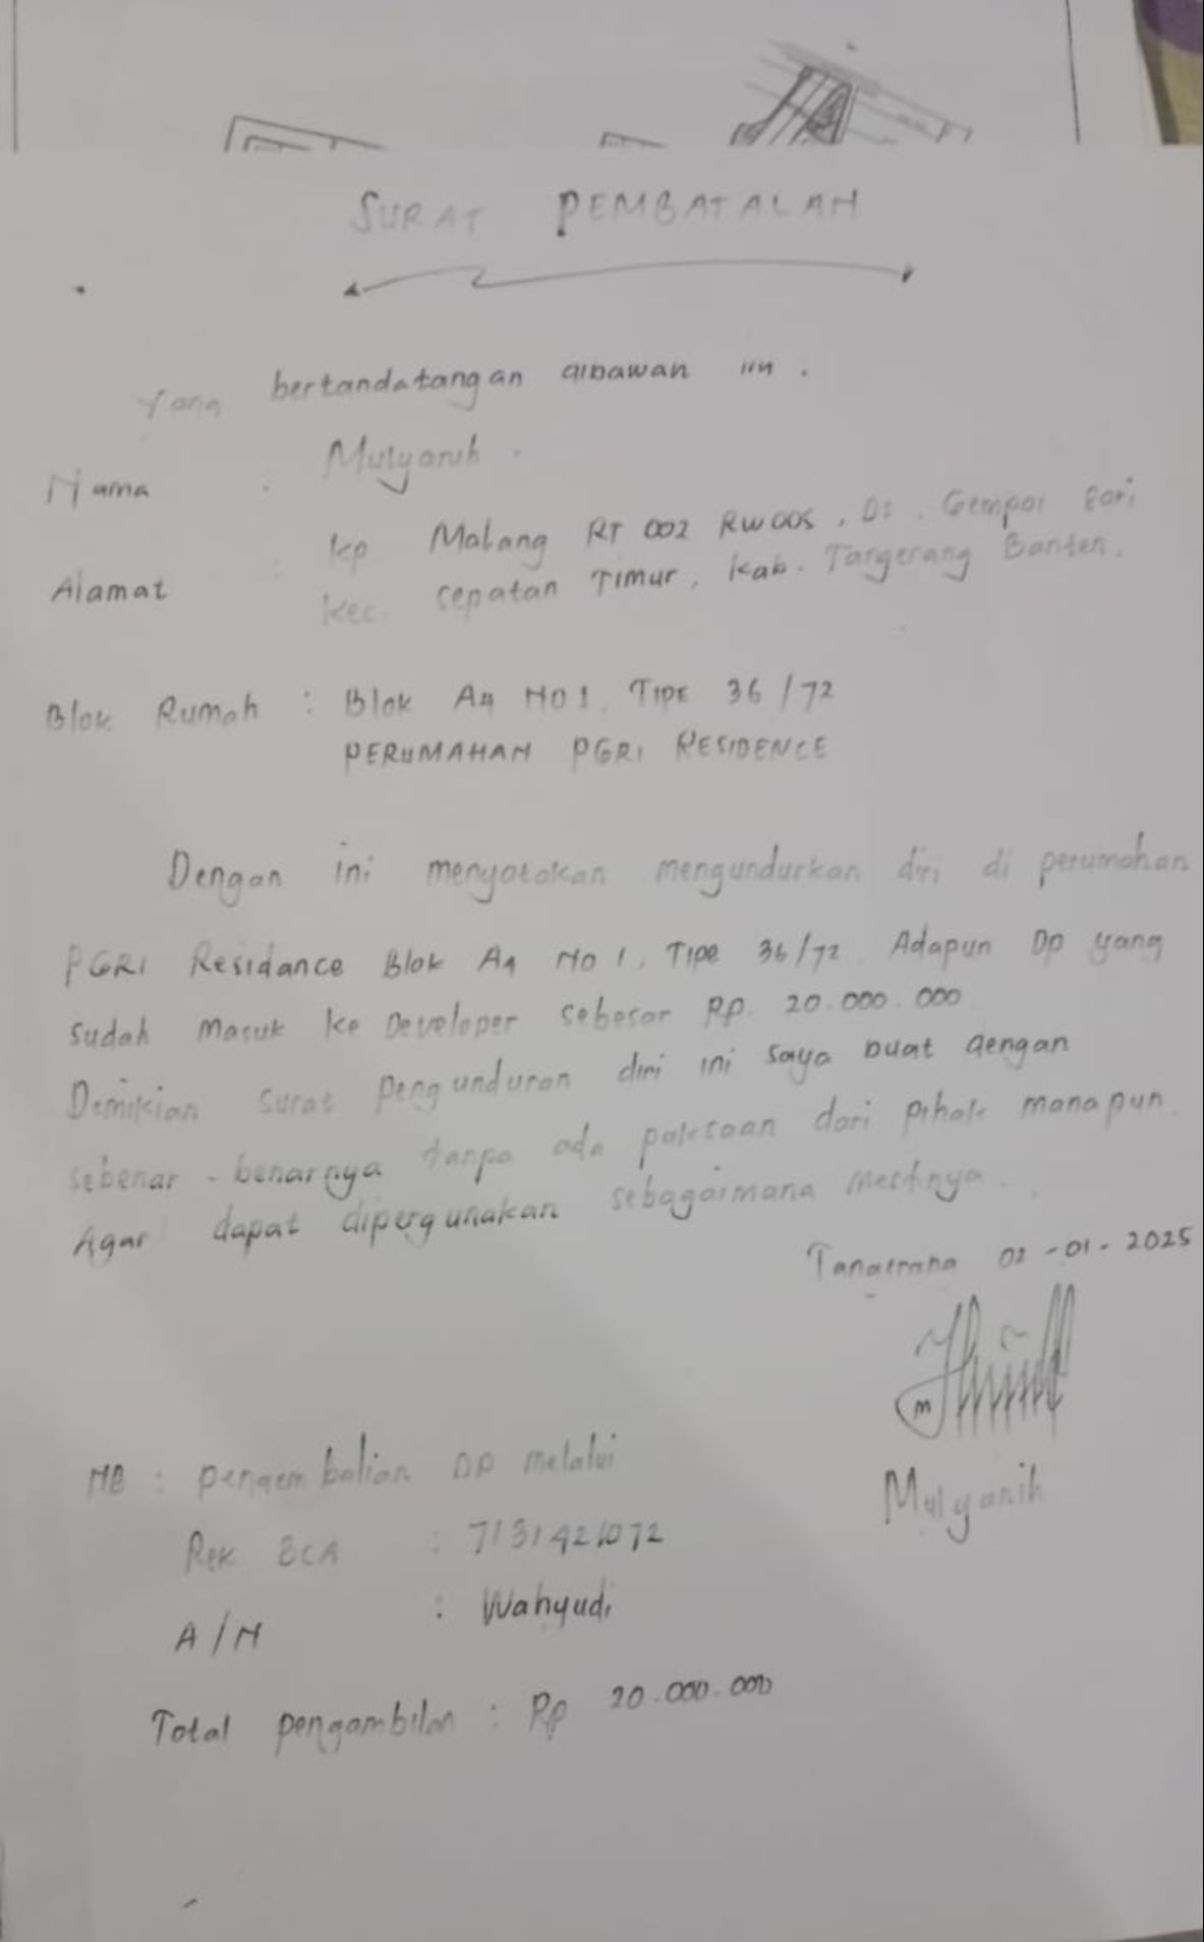 SURAT PEMBATALAN
Yang bertandatangan dibawah ini.
Nama : Mulyanih.
Alamat : kp Malang RT 002 RW 005, Ds. Gempol Sari
kec. sepatan Timur, kab. Tangerang Banten.
Blok Rumah : Blok A4 No 1, Tipe 36/72
PERUMAHAN PGRI RESIDENCE
Dengan ini menyatakan mengundurkan diri di perumahan
PGRI Residance Blok A4 No 1, Tipe 36/72. Adapun Dp yang
sudah Masuk ke Developer sebesar Rp. 20.000.000
Demikian surat pengunduran diri ini saya buat dengan
sebenar-benarnya tanpa ada paksaan dari pihak manapun.
Agar dapat dipergunakan sebagaimana mestinya.
Tangerang -01-2025
Mulyanih
NB : pengembalian DP melalui
Rek BCA :
A/N : Wahyudi
Total pengambilan : Rp 20.000.000